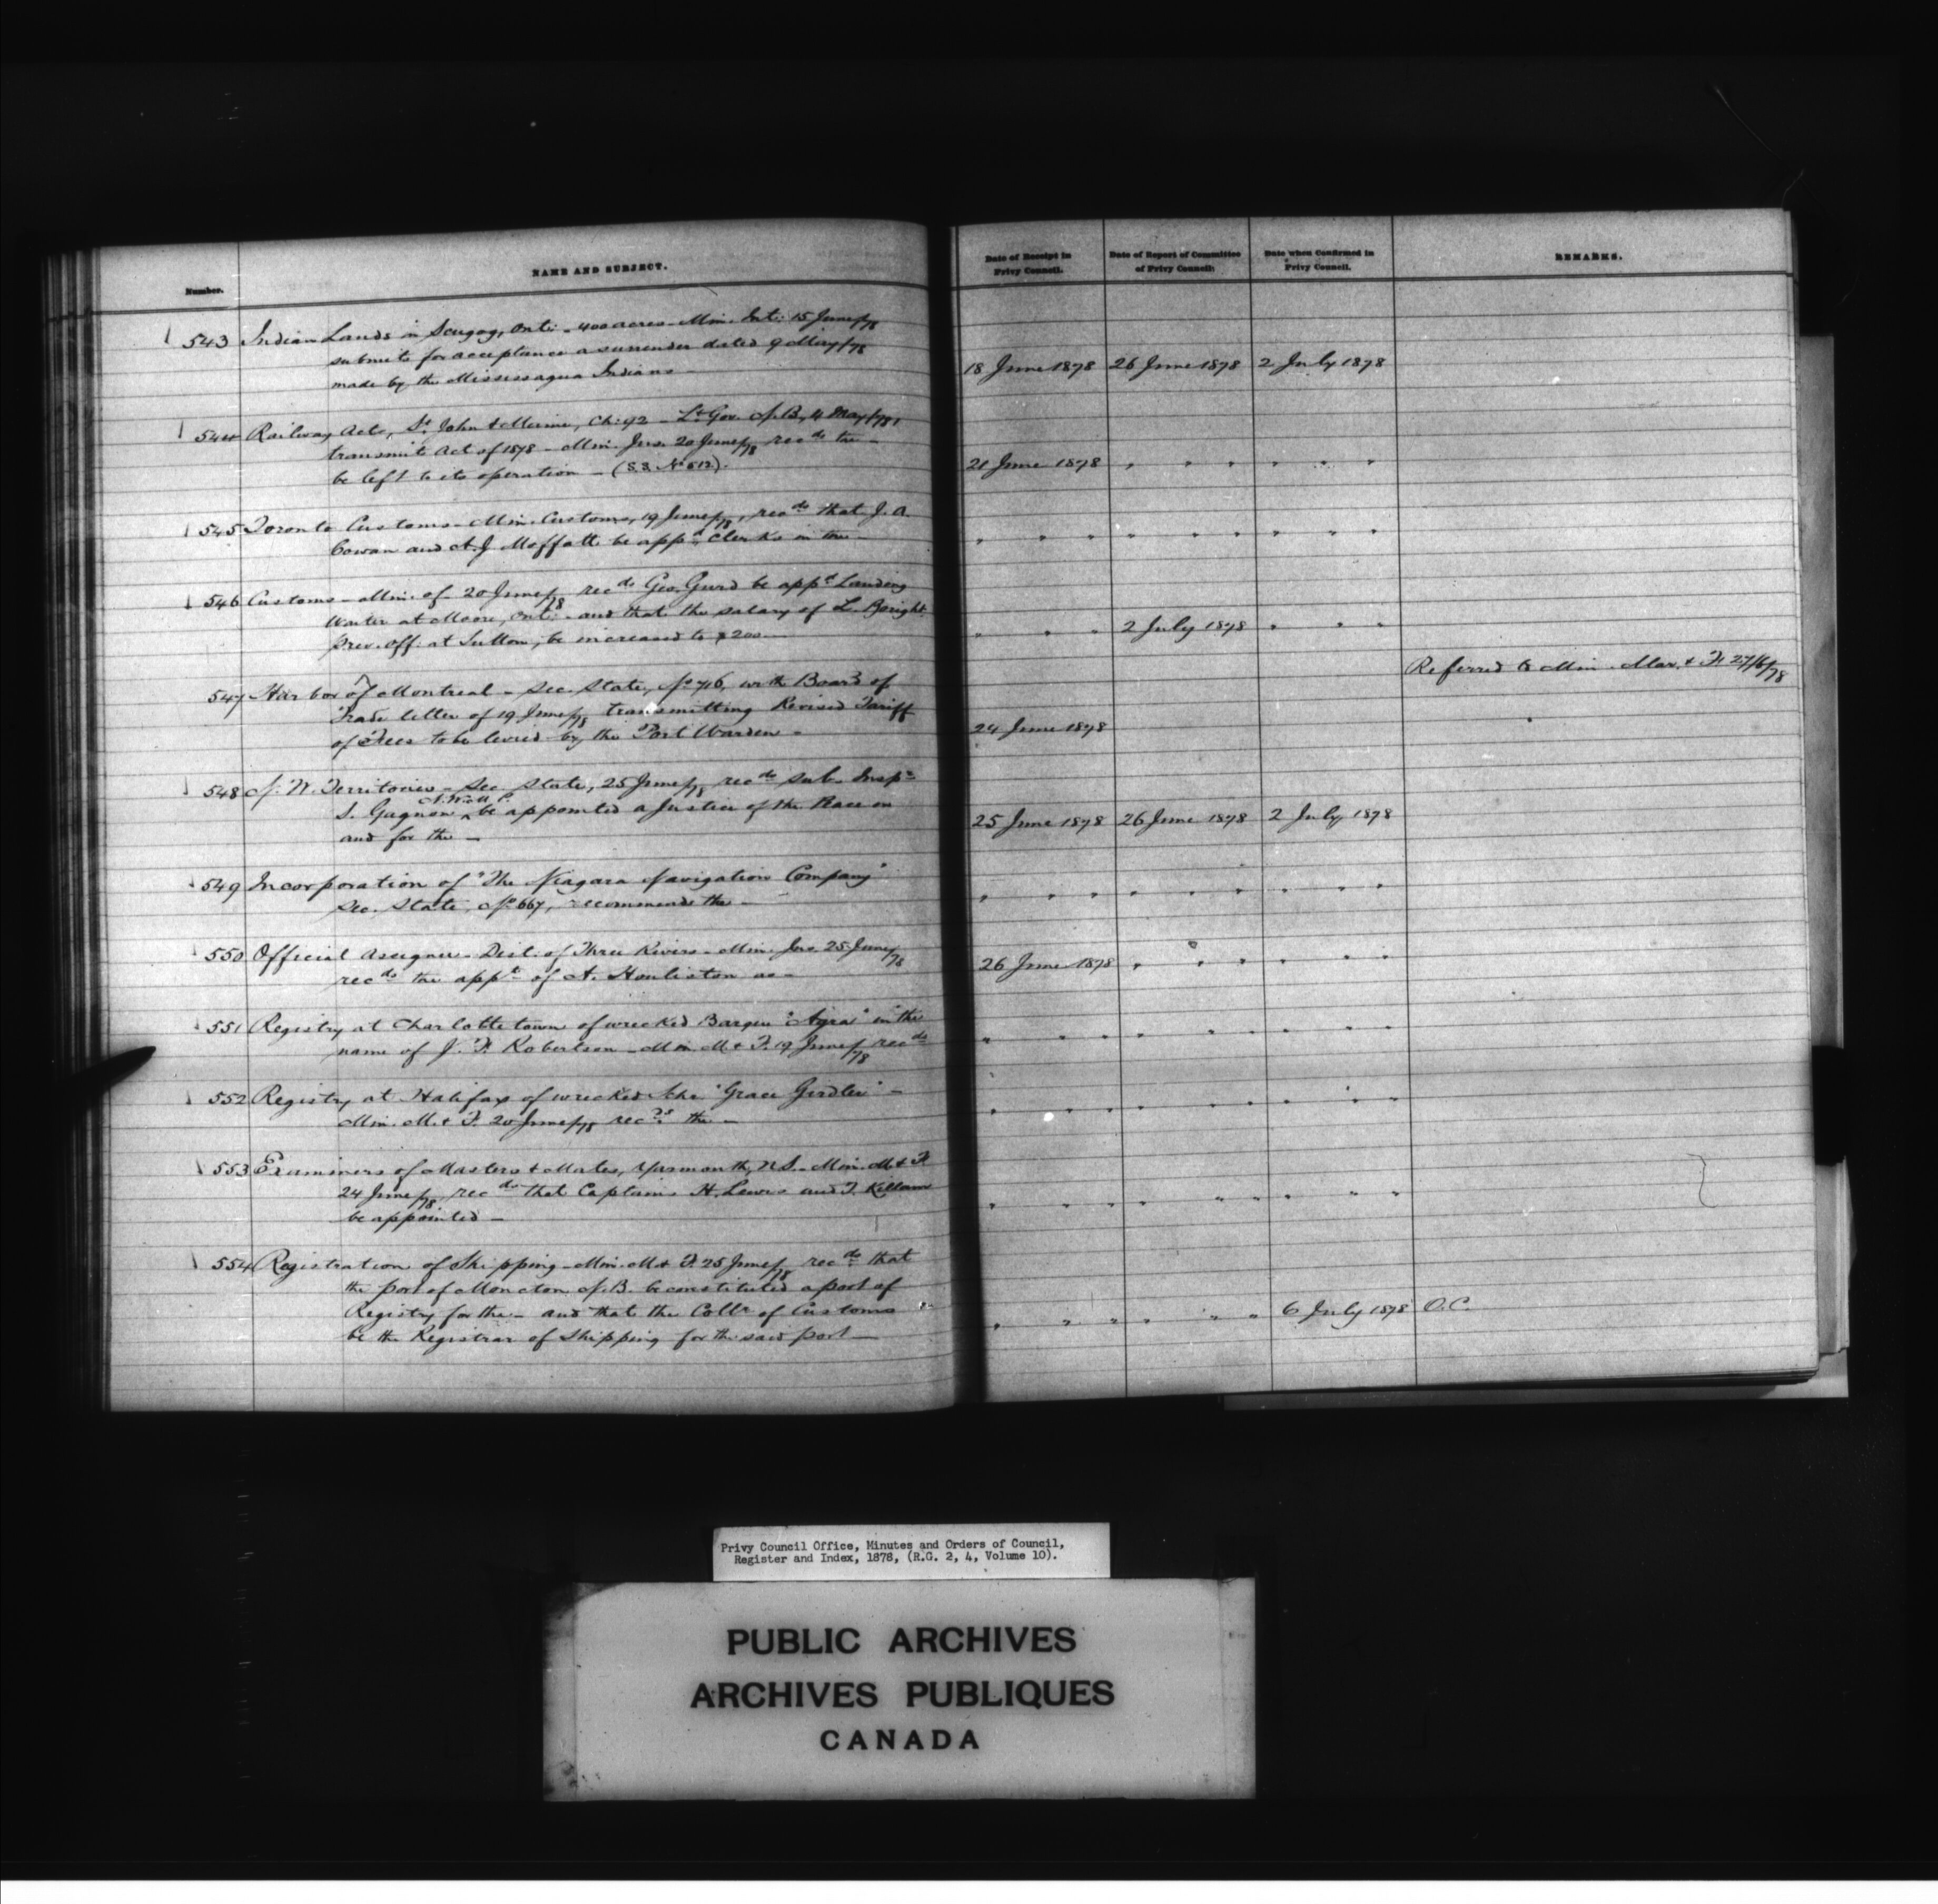 Number.
NAME AND SUBJECT.
Date of Receipt in
Privy Council.
Date of Report of Committee
of Privy Council.
Date when Confirmed in
Privy Council.
REMARKS.
543 Indian Lands in Scugog, Ont: - 400 acres - Min. Int: 15 June/78
submits for acceptance a surrender dated 9 May/78
made by the Mississagua Indians -
18 June 1878 26 June 1878 2 July 1878
544 Railway Act, St. John & Maine, Ch: 92 - Lt. Gov. N.B., 4 May/78,
transmits Act of 1878 - Min. Jus. 20 June/78 recds the -
be left to its operation - (S.S. No 612).
21 June 1878 " " " " " "
545 Toronto Customs - Min. Customs, 19 June/78, recds that J. A.
Cowan and A. J. Moffatt be appd Clerks in the -
" " " " " " " " "
546 Customs - Min. of - 20 June/78 recds Geo. Gurd be appd Landing
Waiter at Moore, Ont: - and that the salary of L. Bright
Prev. Off. at Sutton, be increased to $200 -
" " " 2 July 1878 " " "
547 Harbor of Montreal - Sec. State, No 716, with Board of
Trade letter of 19 June/78 transmitting Revised Tariff
of Fees to be levied by the Port Warden -
24 June 1878
Referred to Min. Mar. & F. 27/6/78
548 N. W. Territories - Sec. State, 25 June/78 recds Sub. Inspr
S. Gagnon N.W.M.P. be appointed a Justice of the Peace in
and for the -
25 June 1878 26 June 1878 2 July 1878
549 Incorporation of "The Niagara Navigation Company"
Sec. State, No 667, recommends the -
" " " " " " " " "
550 Official Assignee - Dist. of Three Rivers - Min. Jus. 25 June/78
recds the appt of A. Houliston as -
26 June 1878 " " " " " "
551 Registry at Charlottetown of wrecked Barque "Agra" in the
name of J. F. Robertson - Min. M. & F. 19 June/78 recds
" " " " " " " " "
552 Registry at Halifax of wrecked Schr "Grace Girdler" -
Min. M. & F. 20 June/78 recds the -
" " " " " " " " "
553 Examiners of Masters & Mates, Yarmouth, N.S. - Min. M. & F.
24 June/78 recds that Captains H. Lewis and T. Killam
be appointed -
" " " " " " " " "
554 Registration of Shipping - Min. M. & F. 25 June/78 recds that
the port of Moncton N.B. be constituted a port of
Registry for the - and that the Collr of Customs
be the Registrar of Shipping for the said port -
" " " " " " 6 July 1878 O.C.
Privy Council Office, Minutes and Orders of Council,
Register and Index, 1878, (R.G. 2, 4, Volume 10).
PUBLIC ARCHIVES
ARCHIVES PUBLIQUES
CANADA